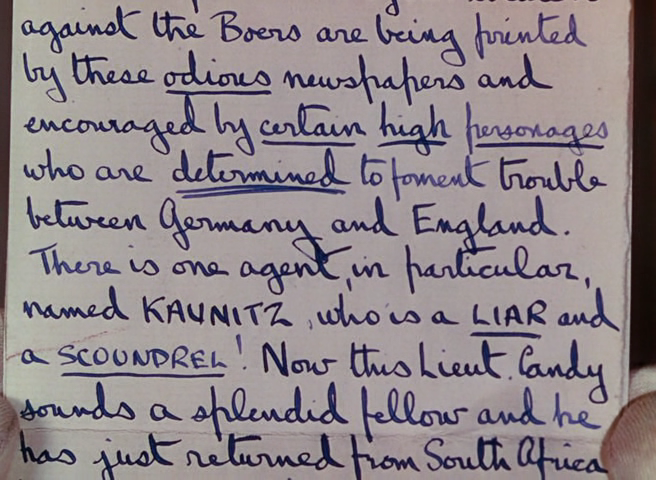 against the Boers are being printed
by these odious newspapers and
encouraged by certain high personages
who are determined to foment trouble
between Germany and England.
There is one agent, in particular,
named KAUNITZ, who is a LIAR and
a SCOUNDREL! Now this Lieut. Candy
sounds a splendid fellow and he
has just returned from South Africa